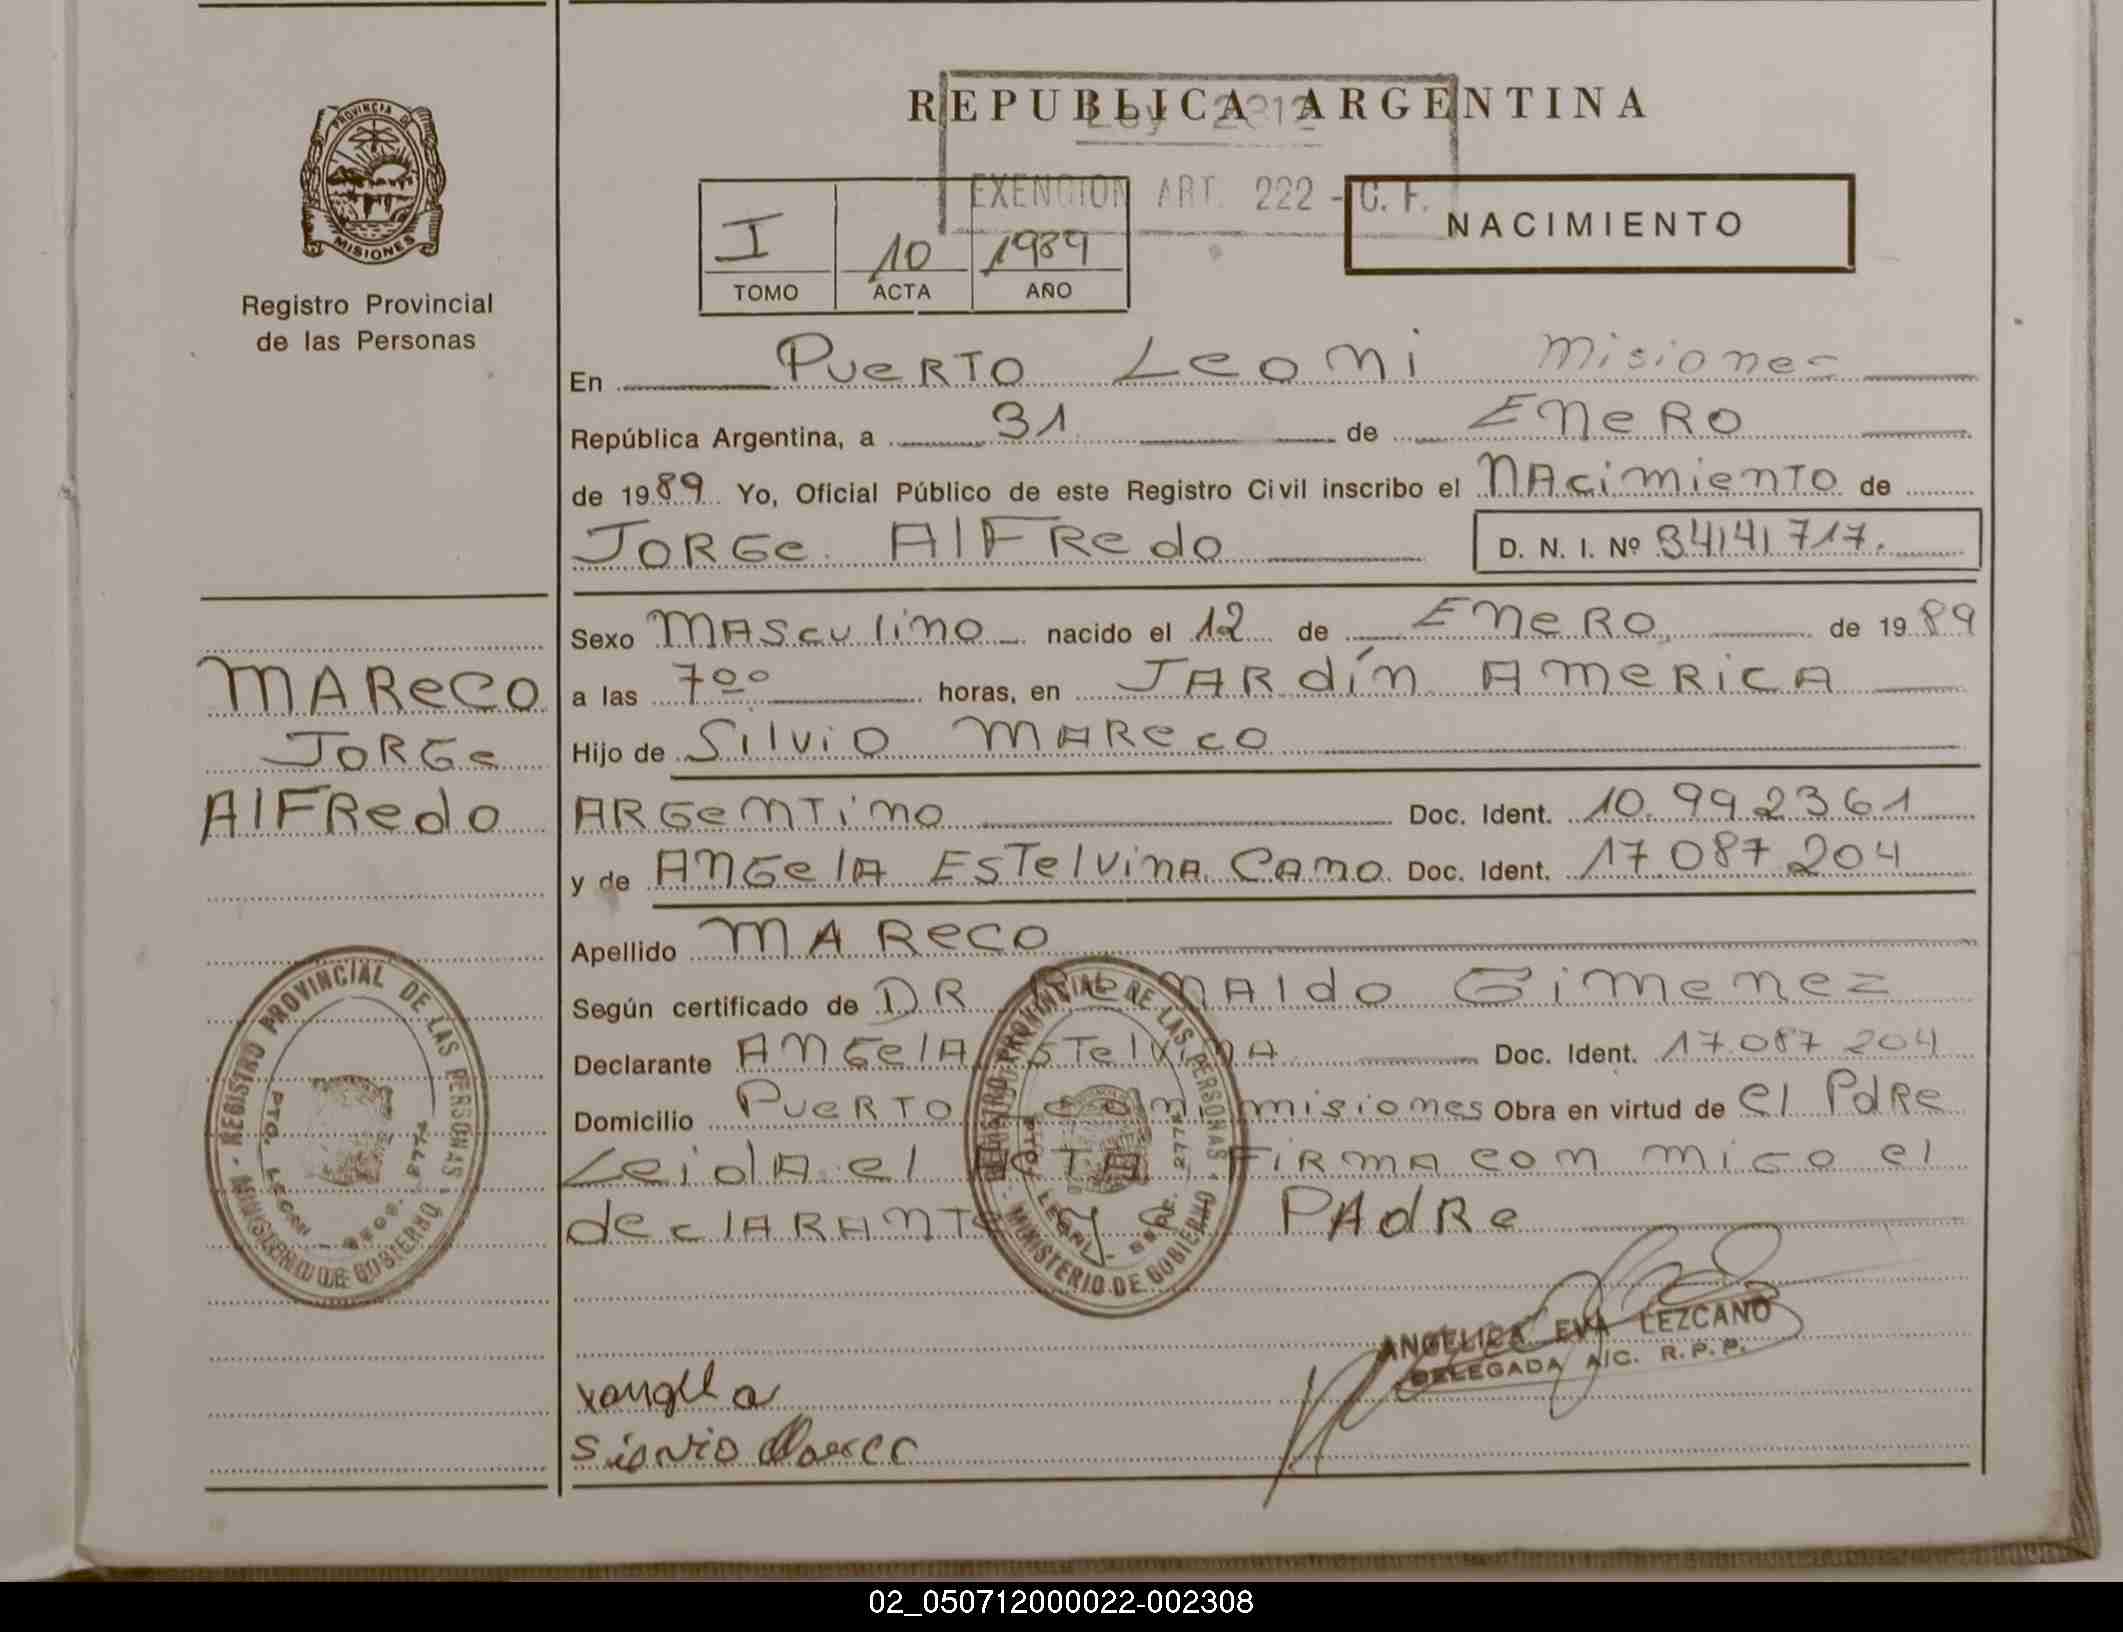 PROVINCIA DE
MISIONES
Registro Provincial
de las Personas
REPUBLICA ARGENTINA
Ley 2212
EXENCION ART. 222 - C. F.
NACIMIENTO
I 10 1989
TOMO ACTA AÑO
En Puerto Leoni Misiones
República Argentina, a 31 de Enero
de 1989 Yo, Oficial Público de este Registro Civil inscribo el Nacimiento de
Jorge Alfredo D. N. I. Nº 34141717.
Sexo Masculino nacido el 12 de Enero de 1989
a las 7⁰⁰ horas, en Jardín America
Hijo de Silvio Mareco
Argentino Doc. Ident. 10.992361
y de Angela Estelvina Cano Doc. Ident. 17087204
Apellido Mareco
Según certificado de DR Renaldo Gimenez
Declarante Angela Estelvina Doc. Ident. 17.087 204
Domicilio Puerto Leoni misiones Obra en virtud de el Pdre
Leida el Acta Firma con mico el
declarante y el Padre
Mareco
Jorge
Alfredo
REGISTRO PROVINCIAL DE LAS PERSONAS
MINISTERIO DE GOBIERNO
PTO. LEONI
REGISTRO PROVINCIAL DE LAS PERSONAS
MINISTERIO DE GOBIERNO
PTO. LEONI
ANGELICA EVA LEZCANO
DELEGADA A/C. R. P. P.
xangela
Sionio Marec
02_050712000022-002308